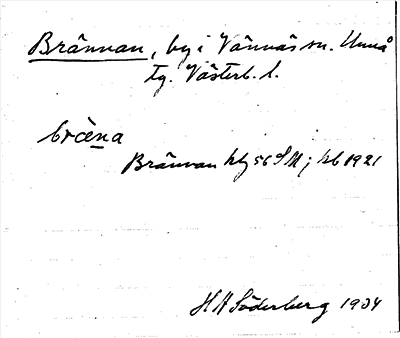 Brännan, by i Vännäs sn. Umeå
tg. Västerb. l.
bræ̀na
Brännan kbl 56 SM; kb 1921
H H Söderberg 1934